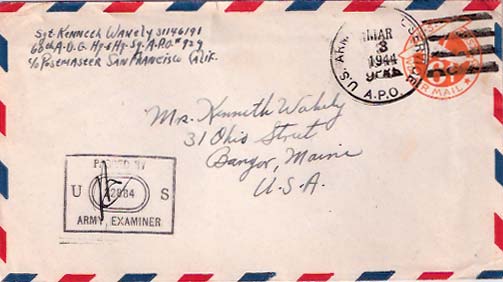 Sgt. Kenneth Wakely 31146191
68th A.D.G. Hq & Hq. Sq. A.P.O. # 929
c/o Postmaster San Francisco Calif.
U.S. ARMY
MAR
3
1944
A.P.O.
6¢
AIR MAIL
Mr. Kenneth Wakely
31 Ohio Street
Bangor, Maine
U.S.A.
PASSED BY
U 22884 S
ARMY EXAMINER